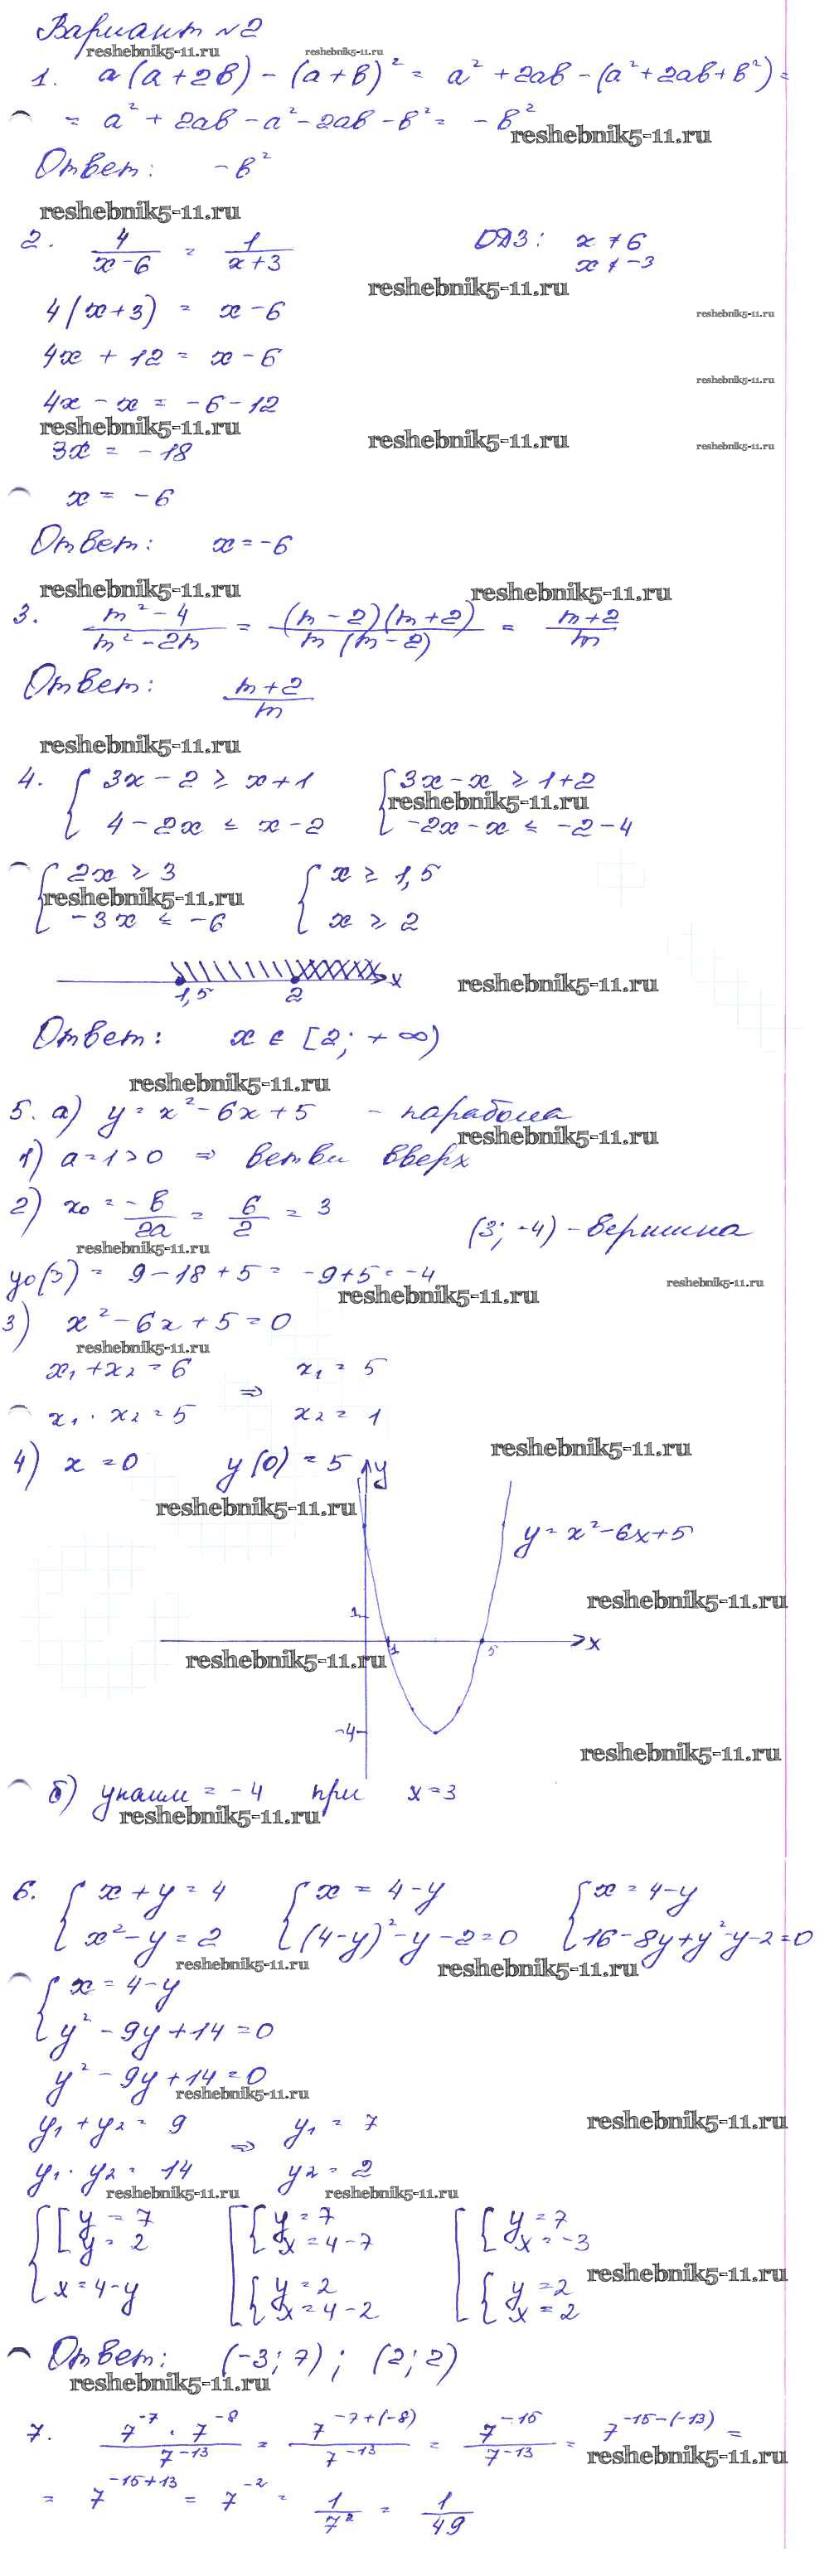 Вариант №2
reshebnik5-11.ru reshebnik5-11.ru
1. a(a+2b) - (a+b)² = a² + 2ab - (a² + 2ab + b²) =
= a² + 2ab - a² - 2ab - b² = - b²
reshebnik5-11.ru
Ответ: - b²
reshebnik5-11.ru
2. 4/(x-6) = 1/(x+3) ОДЗ: x ≠ 6
x ≠ -3
reshebnik5-11.ru
4(x+3) = x-6
reshebnik5-11.ru
4x + 12 = x - 6
reshebnik5-11.ru
4x - x = -6-12
reshebnik5-11.ru reshebnik5-11.ru reshebnik5-11.ru
3x = -18
x = -6
Ответ: x = -6
reshebnik5-11.ru reshebnik5-11.ru
3. (m²-4)/(m²-2m) = (m-2)(m+2)/(m(m-2)) = (m+2)/m
Ответ: (m+2)/m
reshebnik5-11.ru
4. { 3x-2 ≥ x+1 { 3x-x ≥ 1+2
reshebnik5-11.ru
4-2x ≤ x-2 -2x-x ≤ -2-4
{ 2x ≥ 3 { x ≥ 1,5
reshebnik5-11.ru
-3x ≤ -6 x ≥ 2
x
reshebnik5-11.ru
1,5 2
Ответ: x ∈ [2; +∞)
reshebnik5-11.ru
5. а) y = x² - 6x + 5 - парабола
reshebnik5-11.ru
1) a=1>0 ⇒ ветви вверх
2) x₀ = -b/2a = 6/2 = 3 (3; -4) - вершина
reshebnik5-11.ru
y₀(3) = 9-18+5 = -9+5 = -4
reshebnik5-11.ru
reshebnik5-11.ru
3) x² - 6x + 5 = 0
reshebnik5-11.ru
x₁ + x₂ = 6 ⇒ x₁ = 5
x₁ · x₂ = 5 x₂ = 1
reshebnik5-11.ru
4) x = 0 y(0) = 5 y
reshebnik5-11.ru
y = x²-6x+5
reshebnik5-11.ru
1
1 5 x
reshebnik5-11.ru
-4
reshebnik5-11.ru
б) yнаим = -4 при x=3
reshebnik5-11.ru
6. { x+y = 4 { x = 4-y { x = 4-y
x²-y = 2 (4-y)²-y-2=0 16-8y+y²-y-2=0
reshebnik5-11.ru reshebnik5-11.ru
{ x = 4-y
y² - 9y + 14 = 0
y² - 9y + 14 = 0
reshebnik5-11.ru
y₁ + y₂ = 9 ⇒ y₁ = 7
reshebnik5-11.ru
y₁ · y₂ = 14 y₂ = 2
reshebnik5-11.ru reshebnik5-11.ru
{ [ y = 7 [ { y = 7 [ { y = 7
y = 2 x = 4-7 x = -3
reshebnik5-11.ru
x = 4-y { y = 2 { y = 2
x = 4-2 x = 2
Ответ: (-3; 7); (2; 2)
reshebnik5-11.ru
7. (7⁻⁷ · 7⁻⁸)/7⁻¹³ = 7⁻⁷⁺⁽⁻⁸⁾/7⁻¹³ = 7⁻¹⁵/7⁻¹³ = 7⁻¹⁵⁻⁽⁻¹³⁾ =
reshebnik5-11.ru
= 7⁻¹⁵⁺¹³ = 7⁻² = 1/7² = 1/49